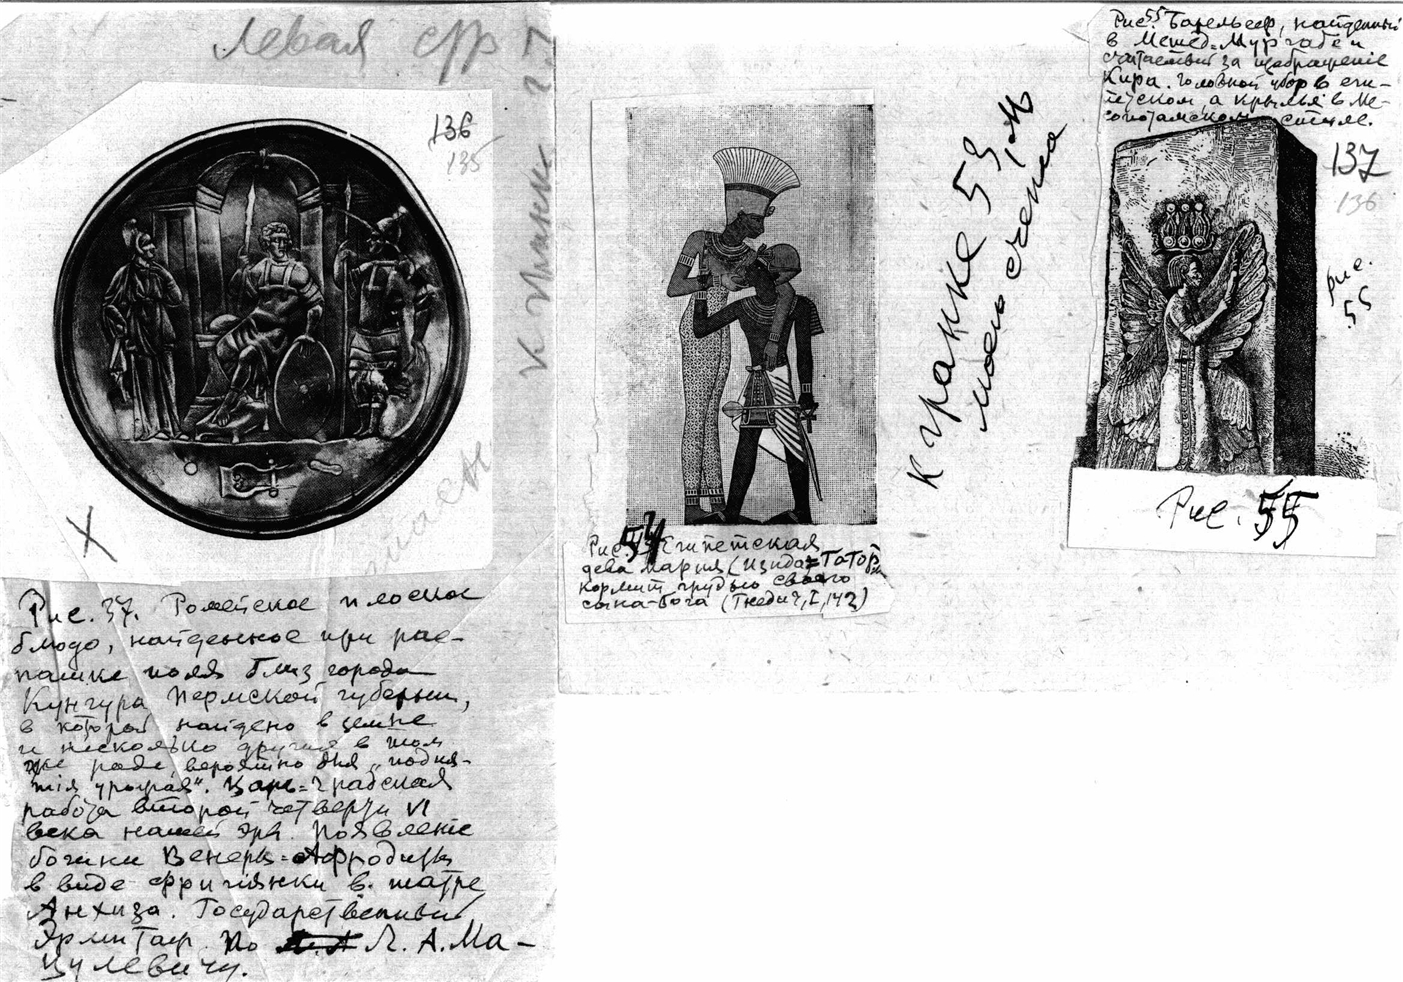 левая стр
к гранке 27
136
135
Рис. 37. Ромейское плоское
блюдо, найденное при рас-
пашке поля близ города
Кунгура Пермской губернии,
в которой найдено в земле
и несколько других в том
же роде, вероятно для „подня-
тія урожая“. Царь=градская
работа второй четверти VI
века нашей эры. Появленіе
богини Венеры=Афродиты
в виде фригіянки в шатре
Анхиза. Государственный
Эрмитаж. По Л. А. Ма-
цулевичу.
Рис. 54 Египетская
дева Мария (Изида=Гатор)
кормит грудью своего
сына-бога (Гнедич, I, 142)
к гранке 53, м
моего счета
Рис. 55 Барельеф, найденный
в Мешед=Мургабе и
считаемый за изображеніе
Кира. Головной убор в еги-
петском, а крылья в Ме-
сопотамском стиле.
137
136
рис.
55
Рис. 55